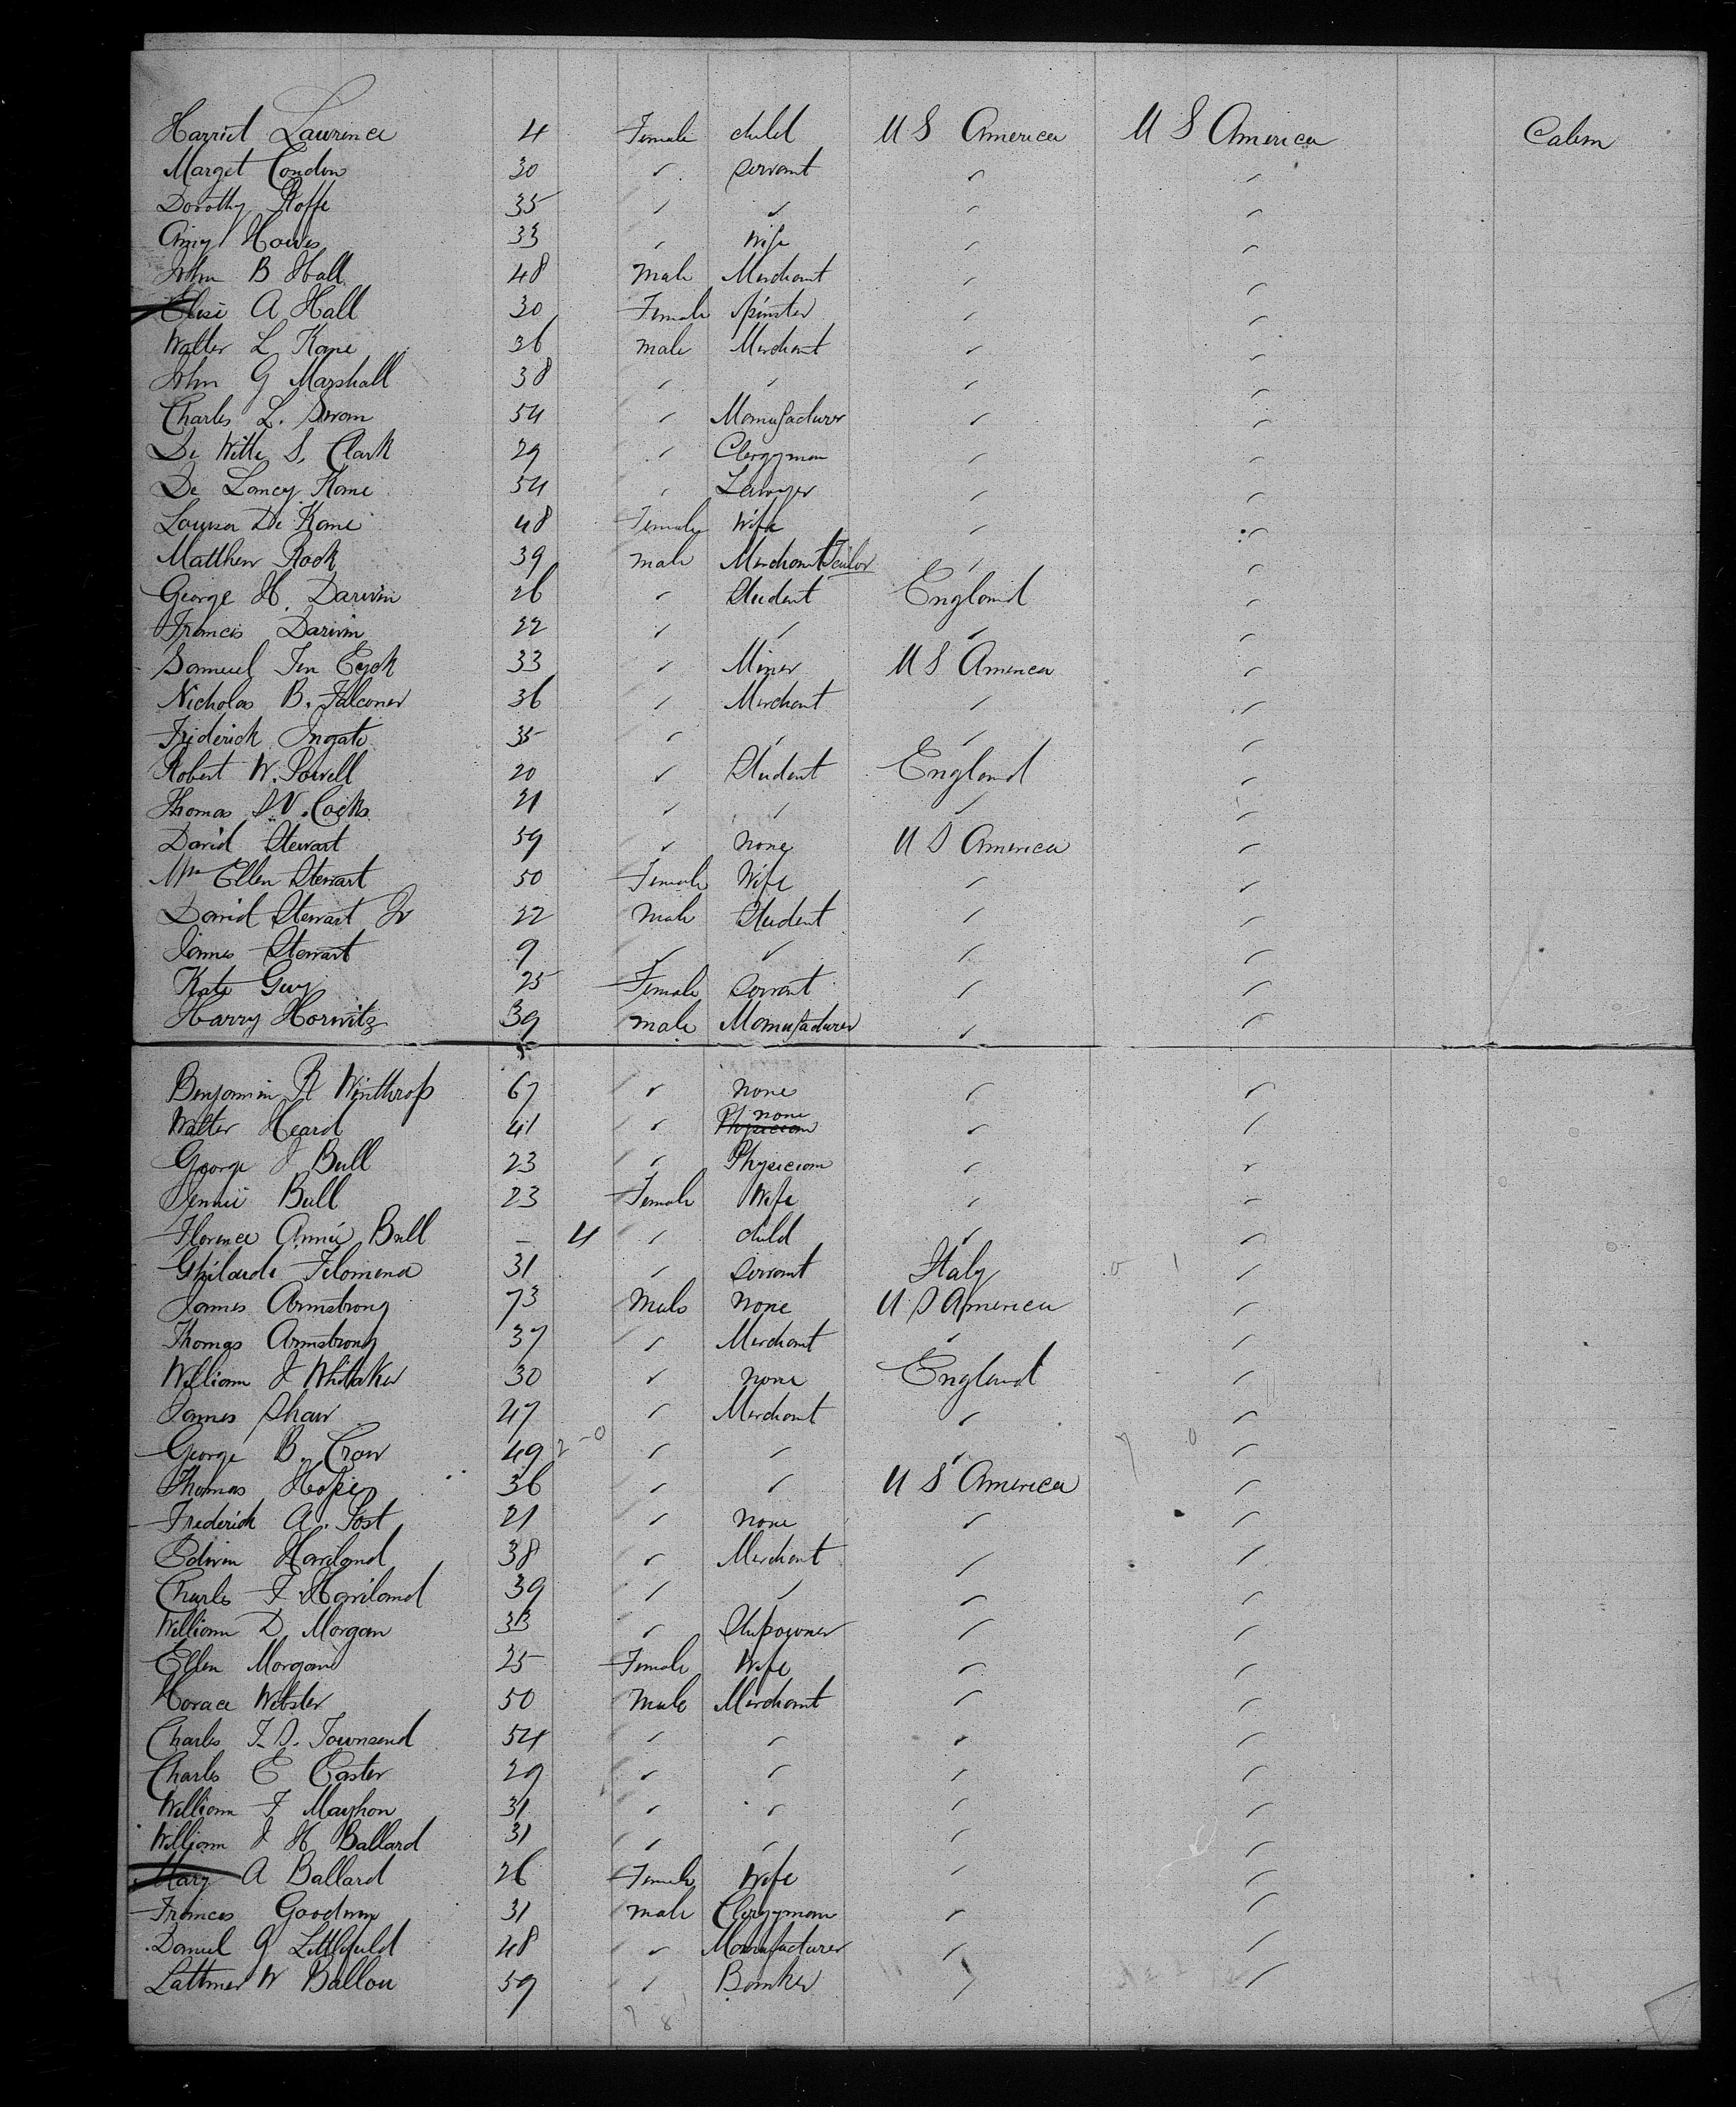 Harriet Lawrence 4 Female child U S America U S America Cabin
Marget Condon 30 " servant " "
Dorothy Roffe 35 " " " "
Amy Howes 33 " Wife " "
John B Hall 48 male Merchant " "
Elise A Hall 30 Female Spinster " "
Walter L Kane 36 male Merchant " "
John G Marshall 38 " " " "
Charles L. Swan 54 " Manufacturer " "
De Witte S. Clark 29 " Clergyman " "
De Lancey Kane 54 " Lawyer " "
Louisa De Kane 48 Female Wife " "
Matthew Rock 39 male Merchant Tailor " "
George H. Darwin 26 " Student England "
Francis Darwin 22 " " " "
Samuel Ten Eyck 33 " Miner U S America "
Nicholas B. Falconer 36 " Merchant " "
Friderick Ingate 35 " " " "
Robert W. Powell 20 " Student England "
Thomas V. Cocks 21 " " " "
David Stewart 59 " none U S America "
Mrs Ellen Stewart 50 Female Wife " "
David Stewart Jr 22 Male Student " "
James Stewart 9 " " " "
Kate Guy 25 Female Servant " "
Harry Horwitz 39 male Manufacturer " "
Benjamin R Winthrop 67 " none " "
Walter Heard 41 " Physician none " "
George J Bull 23 " Physician " "
Jennie Bull 23 Female Wife " "
Florence Annie Bull - 4 " child " "
Ghilardi Filomena 31 " Servant Italy "
James Armstrong 73 Male None U S America "
Thomas Armstrong 37 " Merchant " "
William J Whitaker 30 " none England "
James Shaw 47 " Merchant " "
George B. Crow 49 " " " "
Thomas Hope 36 " " U S America "
Frederick A. Post 21 " none " "
Edwin Haviland 38 " Merchant " "
Charles F Haviland 39 " " " "
William D Morgan 33 " Shipowner " "
Ellen Morgan 25 Female Wife " "
Horace Webster 50 Male Merchant " "
Charles F. S. Townsend 54 " " " "
Charles E Caster 29 " " " "
William F Mayhon 31 " " " "
William J H Ballard 31 " " " "
Mary A Ballard 26 Female Wife " "
Frances Goodwin 31 male Clergyman " "
Daniel G Littlefield 48 " Manufacturer " "
Lattimer W Ballou 59 " Banker " "